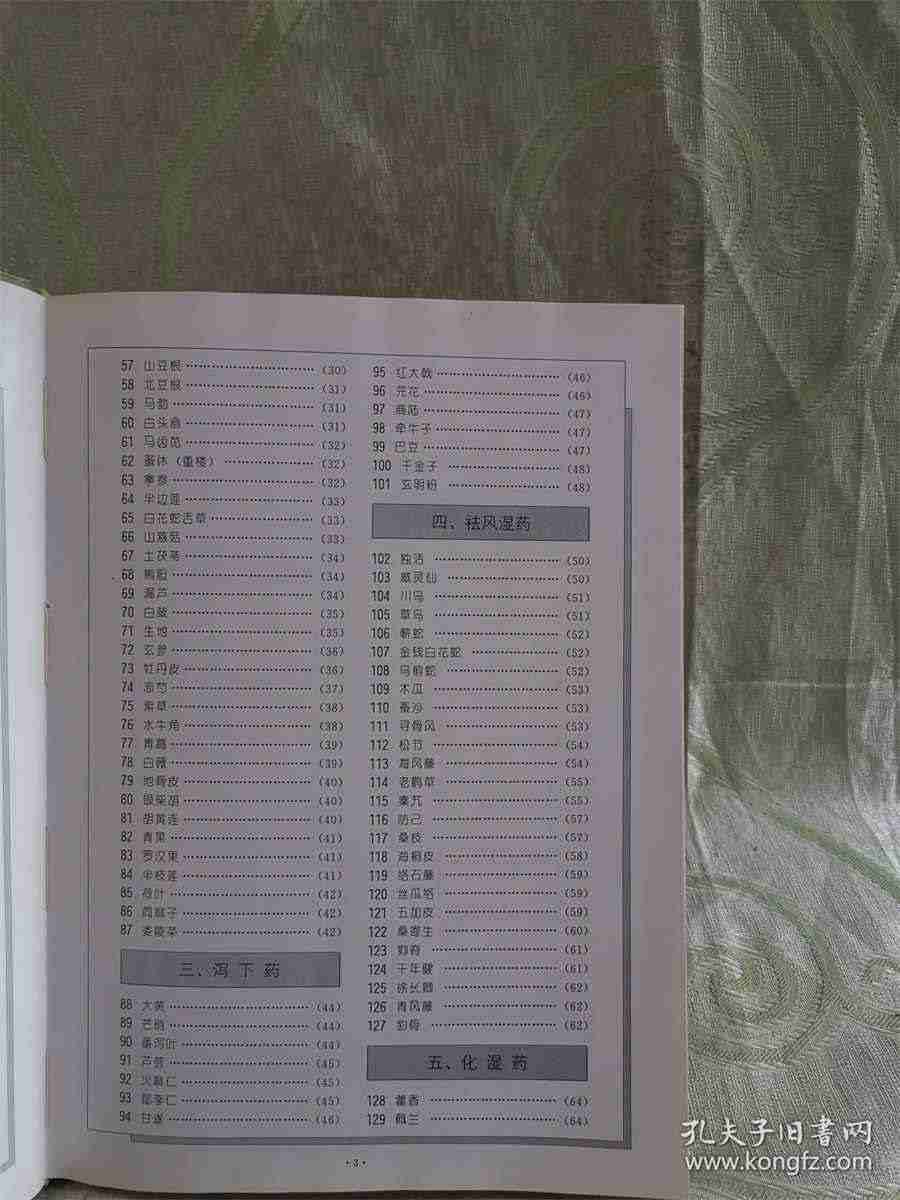 57 山豆根 (30)
58 北豆根 (31)
59 马勃 (31)
60 白头翁 (31)
61 马齿苋 (32)
62 蚤休（重楼） (32)
63 拳参 (32)
64 半边莲 (33)
65 白花蛇舌草 (33)
66 山慈菇 (33)
67 土茯苓 (34)
68 熊胆 (34)
69 漏芦 (34)
70 白蔹 (35)
71 生地 (35)
72 玄参 (36)
73 牡丹皮 (36)
74 赤芍 (37)
75 紫草 (38)
76 水牛角 (38)
77 青蒿 (39)
78 白薇 (39)
79 地骨皮 (40)
80 银柴胡 (40)
81 胡黄连 (40)
82 青果 (41)
83 罗汉果 (41)
84 半枝莲 (41)
85 荷叶 (42)
86 茼麻子 (42)
87 委陵菜 (42)
三、泻下药
88 大黄 (44)
89 芒硝 (44)
90 番泻叶 (44)
91 芦荟 (45)
92 火麻仁 (45)
93 郁李仁 (45)
94 甘遂 (46)
95 红大戟 (46)
96 芫花 (46)
97 商陆 (47)
98 牵牛子 (47)
99 巴豆 (47)
100 千金子 (48)
101 玄明粉 (48)
四、祛风湿药
102 独活 (50)
103 威灵仙 (50)
104 川乌 (51)
105 草乌 (51)
106 蕲蛇 (52)
107 金钱白花蛇 (52)
108 乌梢蛇 (52)
109 木瓜 (53)
110 蚕沙 (53)
111 寻骨风 (53)
112 松节 (54)
113 海风藤 (54)
114 老鹳草 (55)
115 秦艽 (55)
116 防己 (57)
117 桑枝 (57)
118 海桐皮 (58)
119 络石藤 (59)
120 丝瓜络 (59)
121 五加皮 (59)
122 桑寄生 (60)
123 狗脊 (61)
124 千年健 (61)
125 徐长卿 (62)
126 青风藤 (62)
127 豹骨 (62)
五、化湿药
128 藿香 (64)
129 佩兰 (64)
·3·
孔夫子旧书网
www.kongfz.com